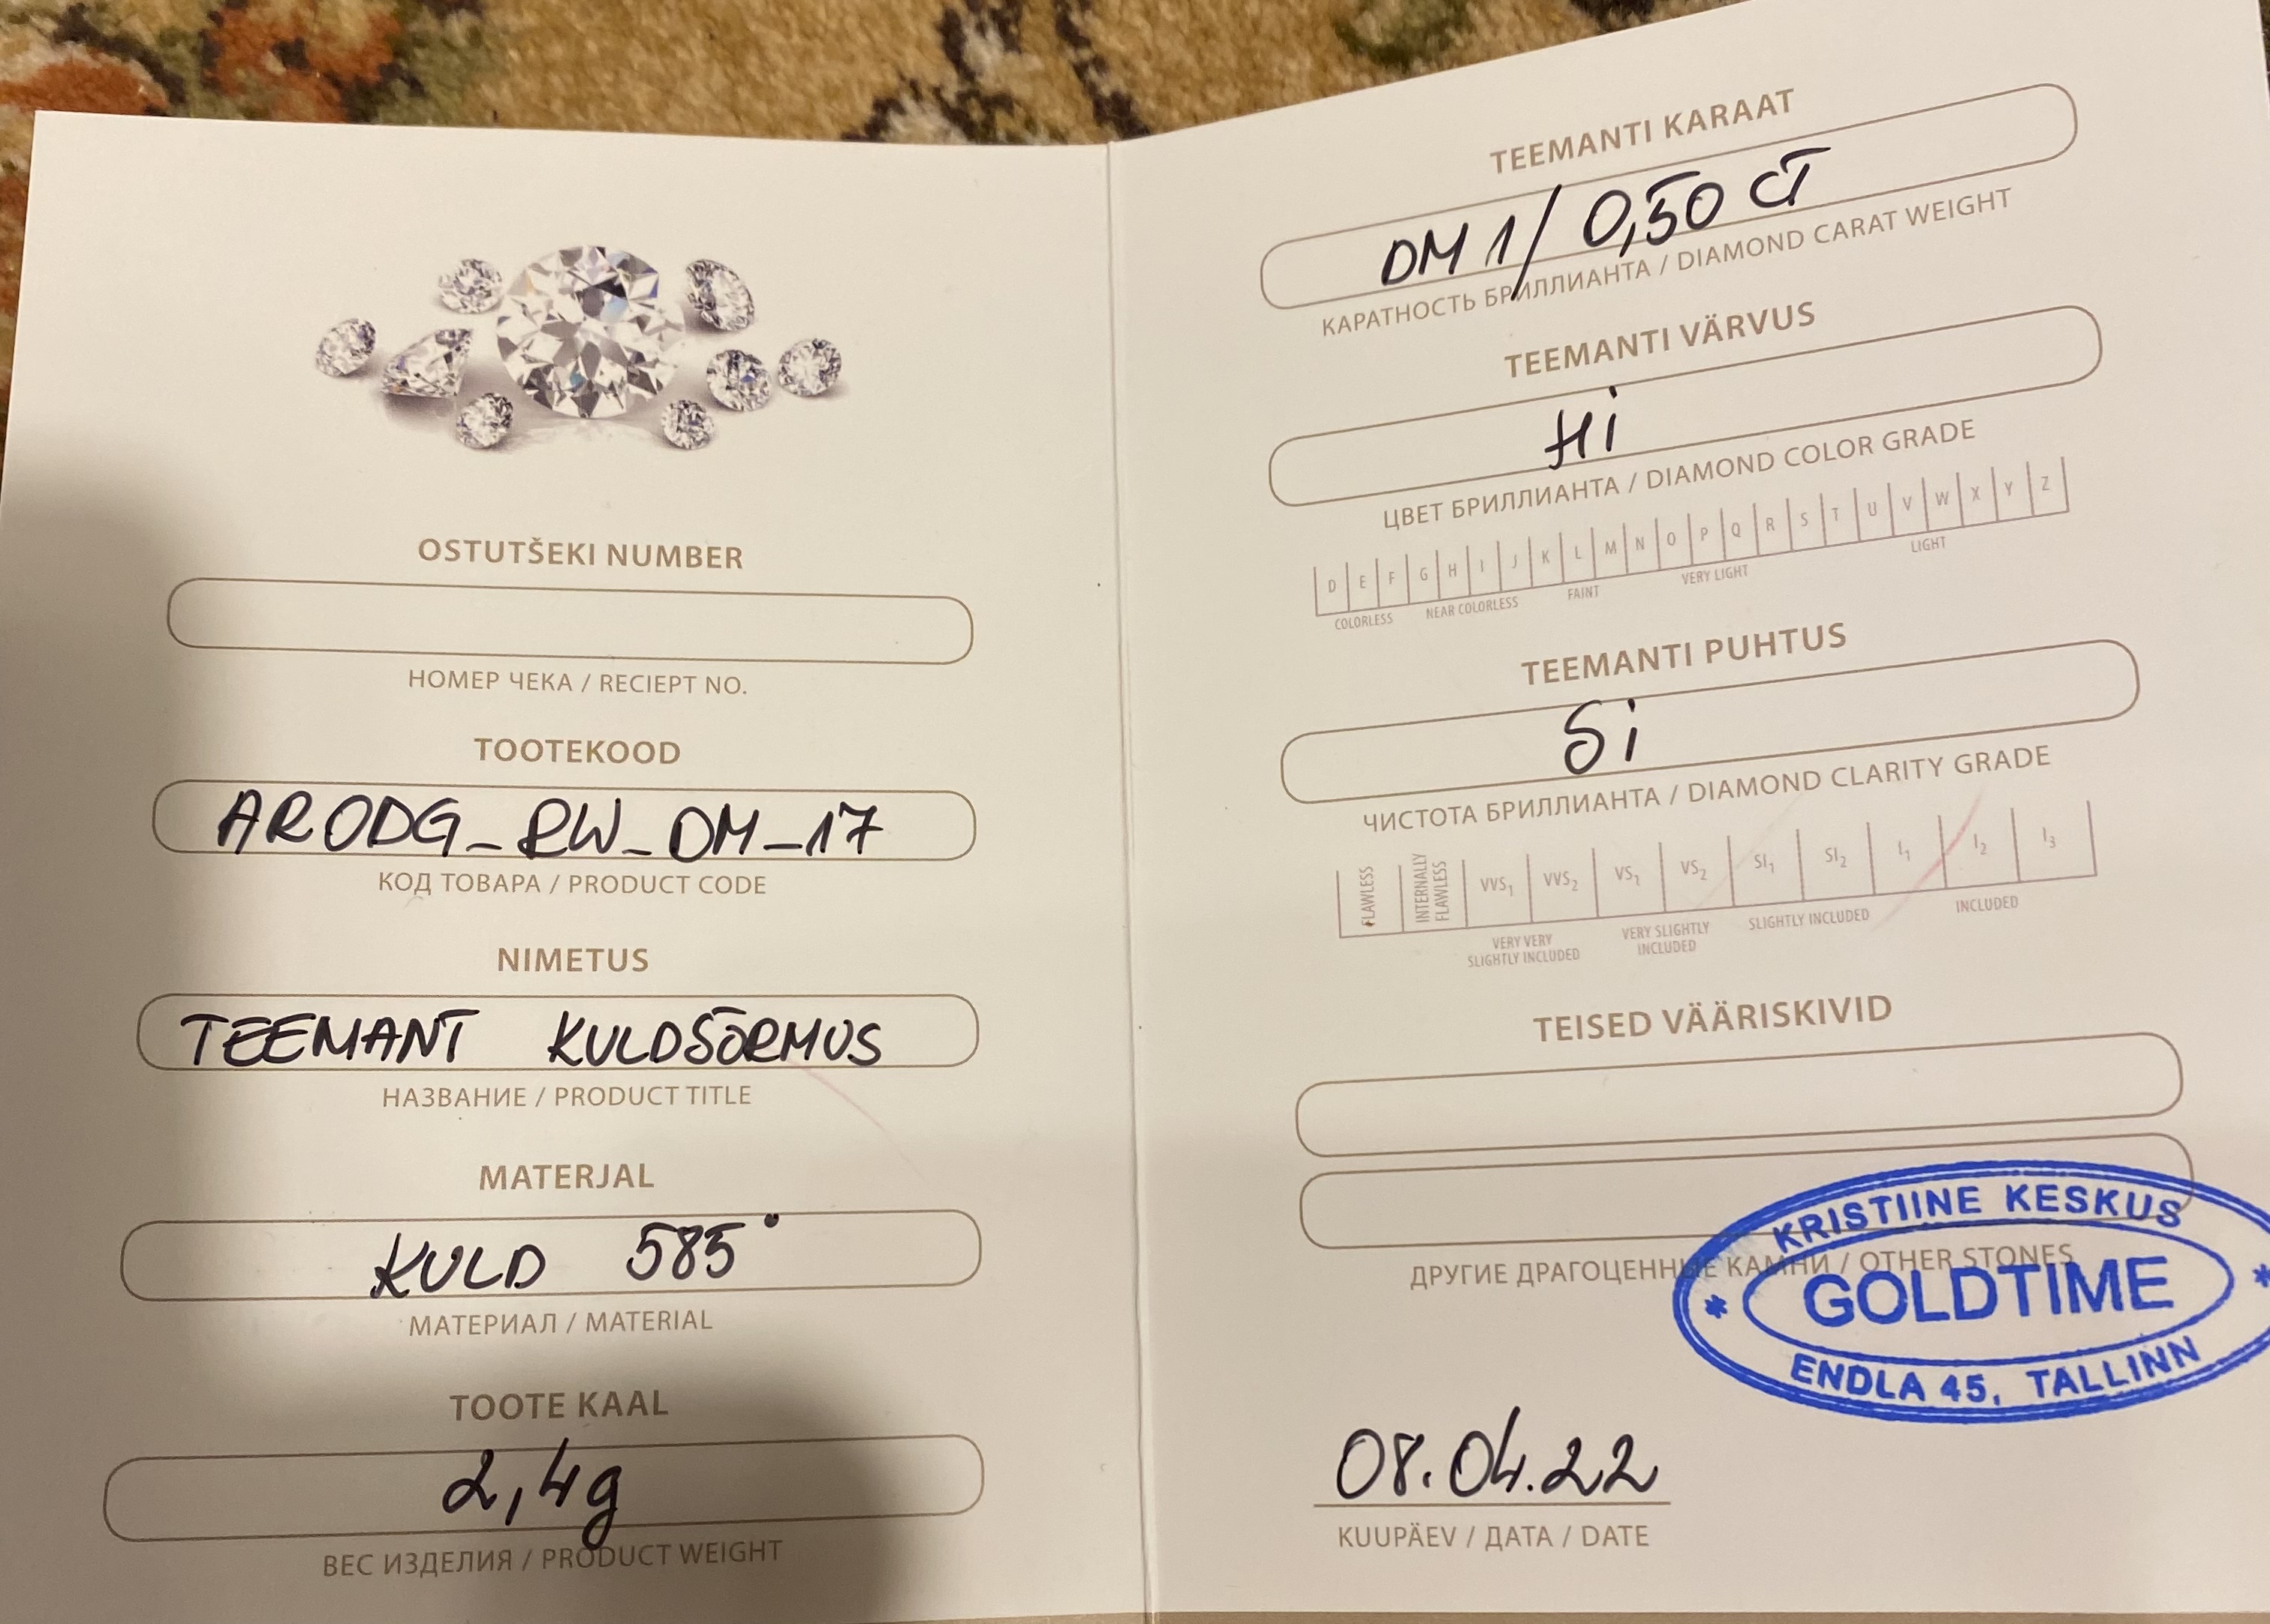 OSTUTŠEKI NUMBER
НОМЕР ЧЕКА / RECIEPT NO.
TOOTEKOOD
ARODG_RW_DM_17
КОД ТОВАРА / PRODUCT CODE
NIMETUS
TEEMANT KULDSÕRMUS
НАЗВАНИЕ / PRODUCT TITLE
MATERJAL
KULD 585°
МАТЕРИАЛ / MATERIAL
TOOTE KAAL
2,4g
ВЕС ИЗДЕЛИЯ / PRODUCT WEIGHT
TEEMANTI KARAAT
DM 1/ 0,50 CT
КАРАТНОСТЬ БРИЛЛИАНТА / DIAMOND CARAT WEIGHT
TEEMANTI VÄRVUS
Hi
ЦВЕТ БРИЛЛИАНТА / DIAMOND COLOR GRADE
D E F G H I J K L M N O P Q R S T U V W X Y Z
COLORLESS NEAR COLORLESS FAINT VERY LIGHT LIGHT
TEEMANTI PUHTUS
Si
ЧИСТОТА БРИЛЛИАНТА / DIAMOND CLARITY GRADE
FLAWLESS
INTERNALLY
FLAWLESS
VVS1 VVS2 VS1 VS2 SI1 SI2 I1 I2 I3
VERY VERY
SLIGHTLY INCLUDED
VERY SLIGHTLY
INCLUDED
SLIGHTLY INCLUDED
INCLUDED
TEISED VÄÄRISKIVID
ДРУГИЕ ДРАГОЦЕННЫЕ КАМНИ / OTHER STONES
* KRISTIINE KESKUS *
GOLDTIME
ENDLA 45, TALLINN
08.04.22
KUUPÄEV / ДАТА / DATE